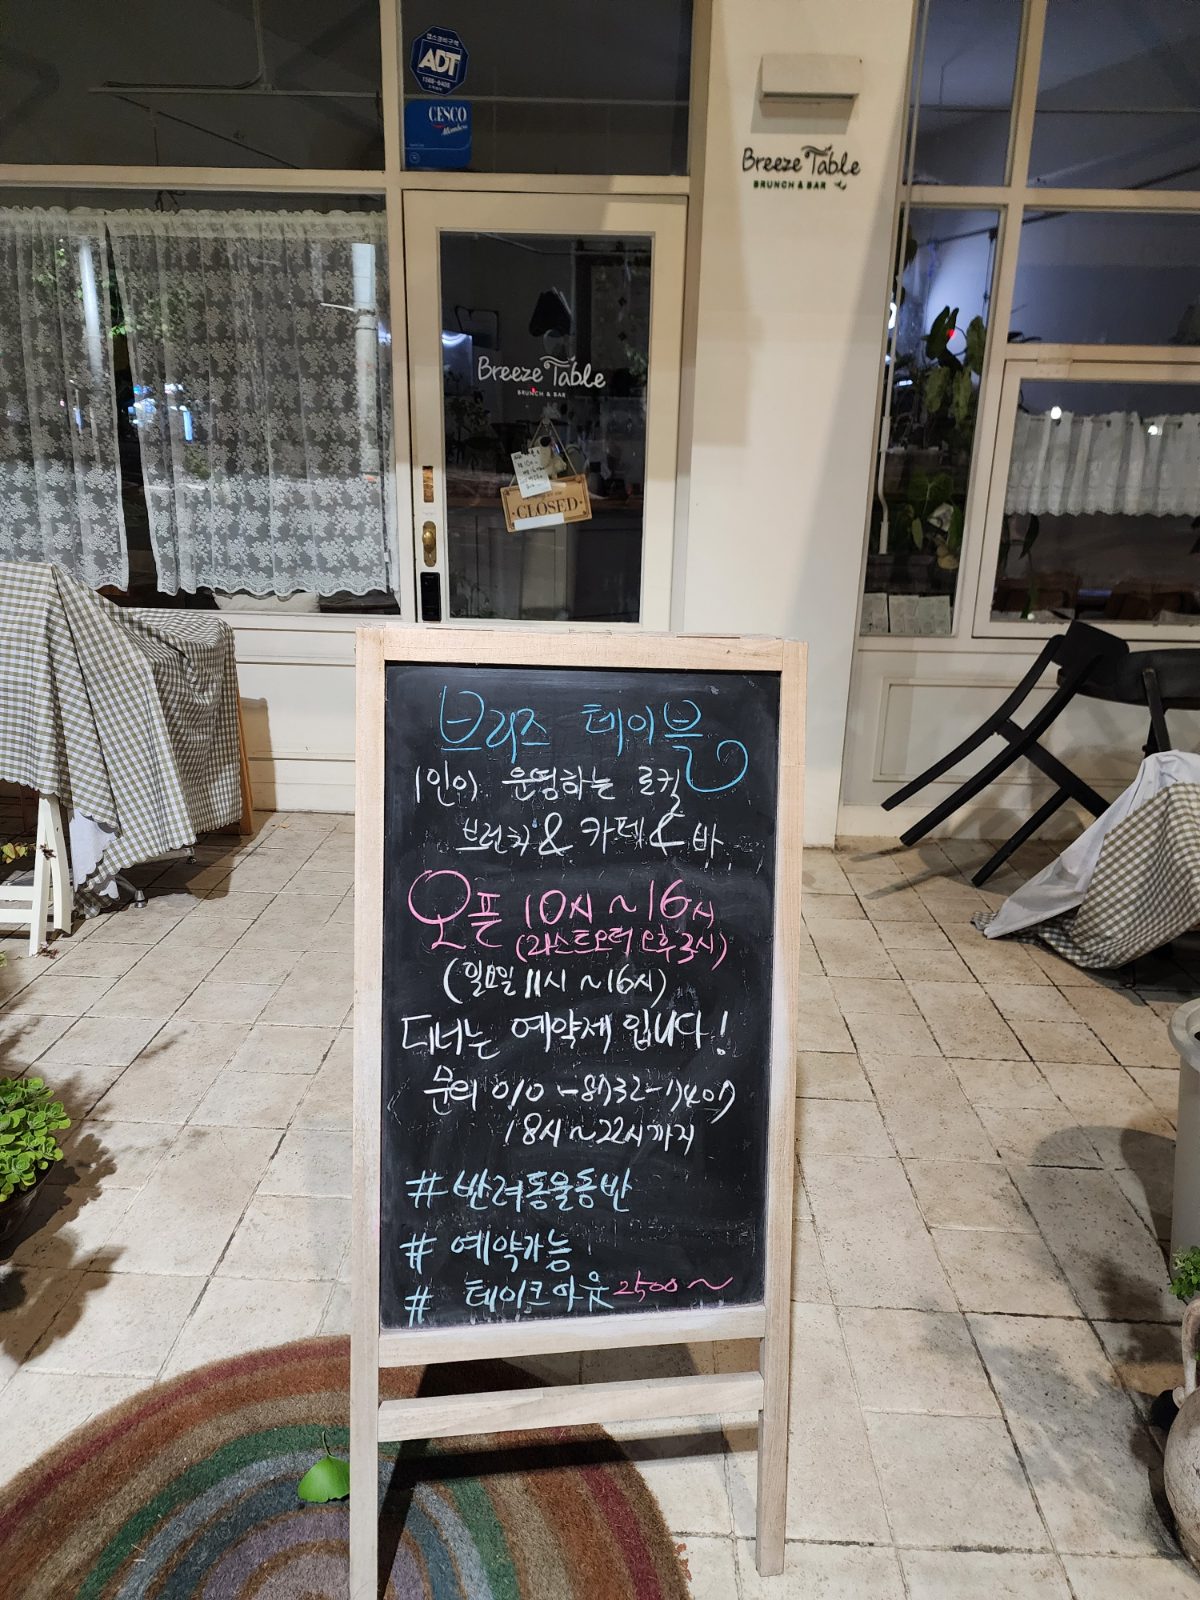 ADT
CESCO
Members
Breeze Table
BRUNCH & BAR
Breeze Table
BRUNCH & BAR
CLOSED
브리즈 테이블
1인이 운영하는 로컬
브런치 & 카페 & 바
오픈 10시 ~ 16시
(라스트오더 오후 3시)
(일요일 11시 ~ 16시)
디너는 예약제 입니다!
문의 010-8732-7407
18시 ~ 22시까지
# 반려동물동반
# 예약가능
# 테이크아웃 2500 ~